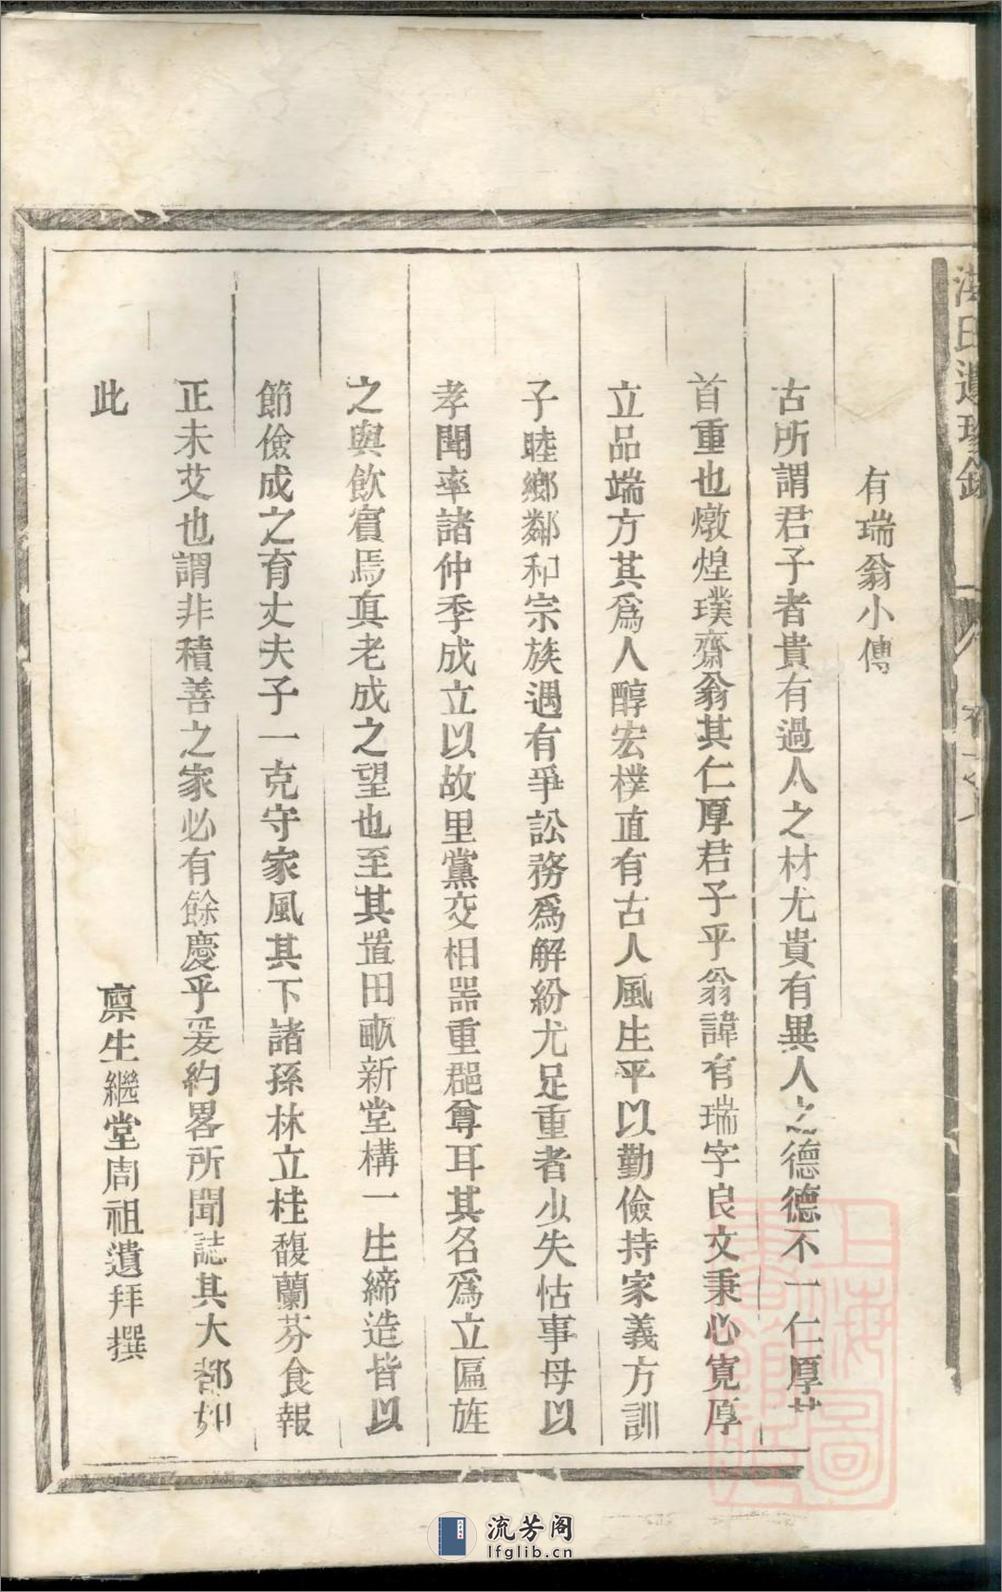 洪氏遺珍錄
有瑞翁小傳
古所謂君子者貴有過人之材尤貴有異人之德德不一仁厚其
首重也燉煌璞齋翁其仁厚君子乎翁諱有瑞字良文秉心寬厚
立品端方其爲人醇宏樸直有古人風生平以勤儉持家義方訓
子睦鄉鄰和宗族遇有爭訟務爲解紛尤足重者少失怙事母以
孝聞率諸仲季成立以故里黨交相器重邑尊耳其名爲立匾旌
之與飲賓焉真老成之望也至其置田畝新堂構一生締造皆以
節儉成之育丈夫子一克守家風其下諸孫林立桂馥蘭芬食報
正未艾也謂非積善之家必有餘慶乎爰約畧所聞誌其大都如
此
廩生繼堂周祖遺拜撰
上海圖書館藏
流芳阁
lfglib.cn